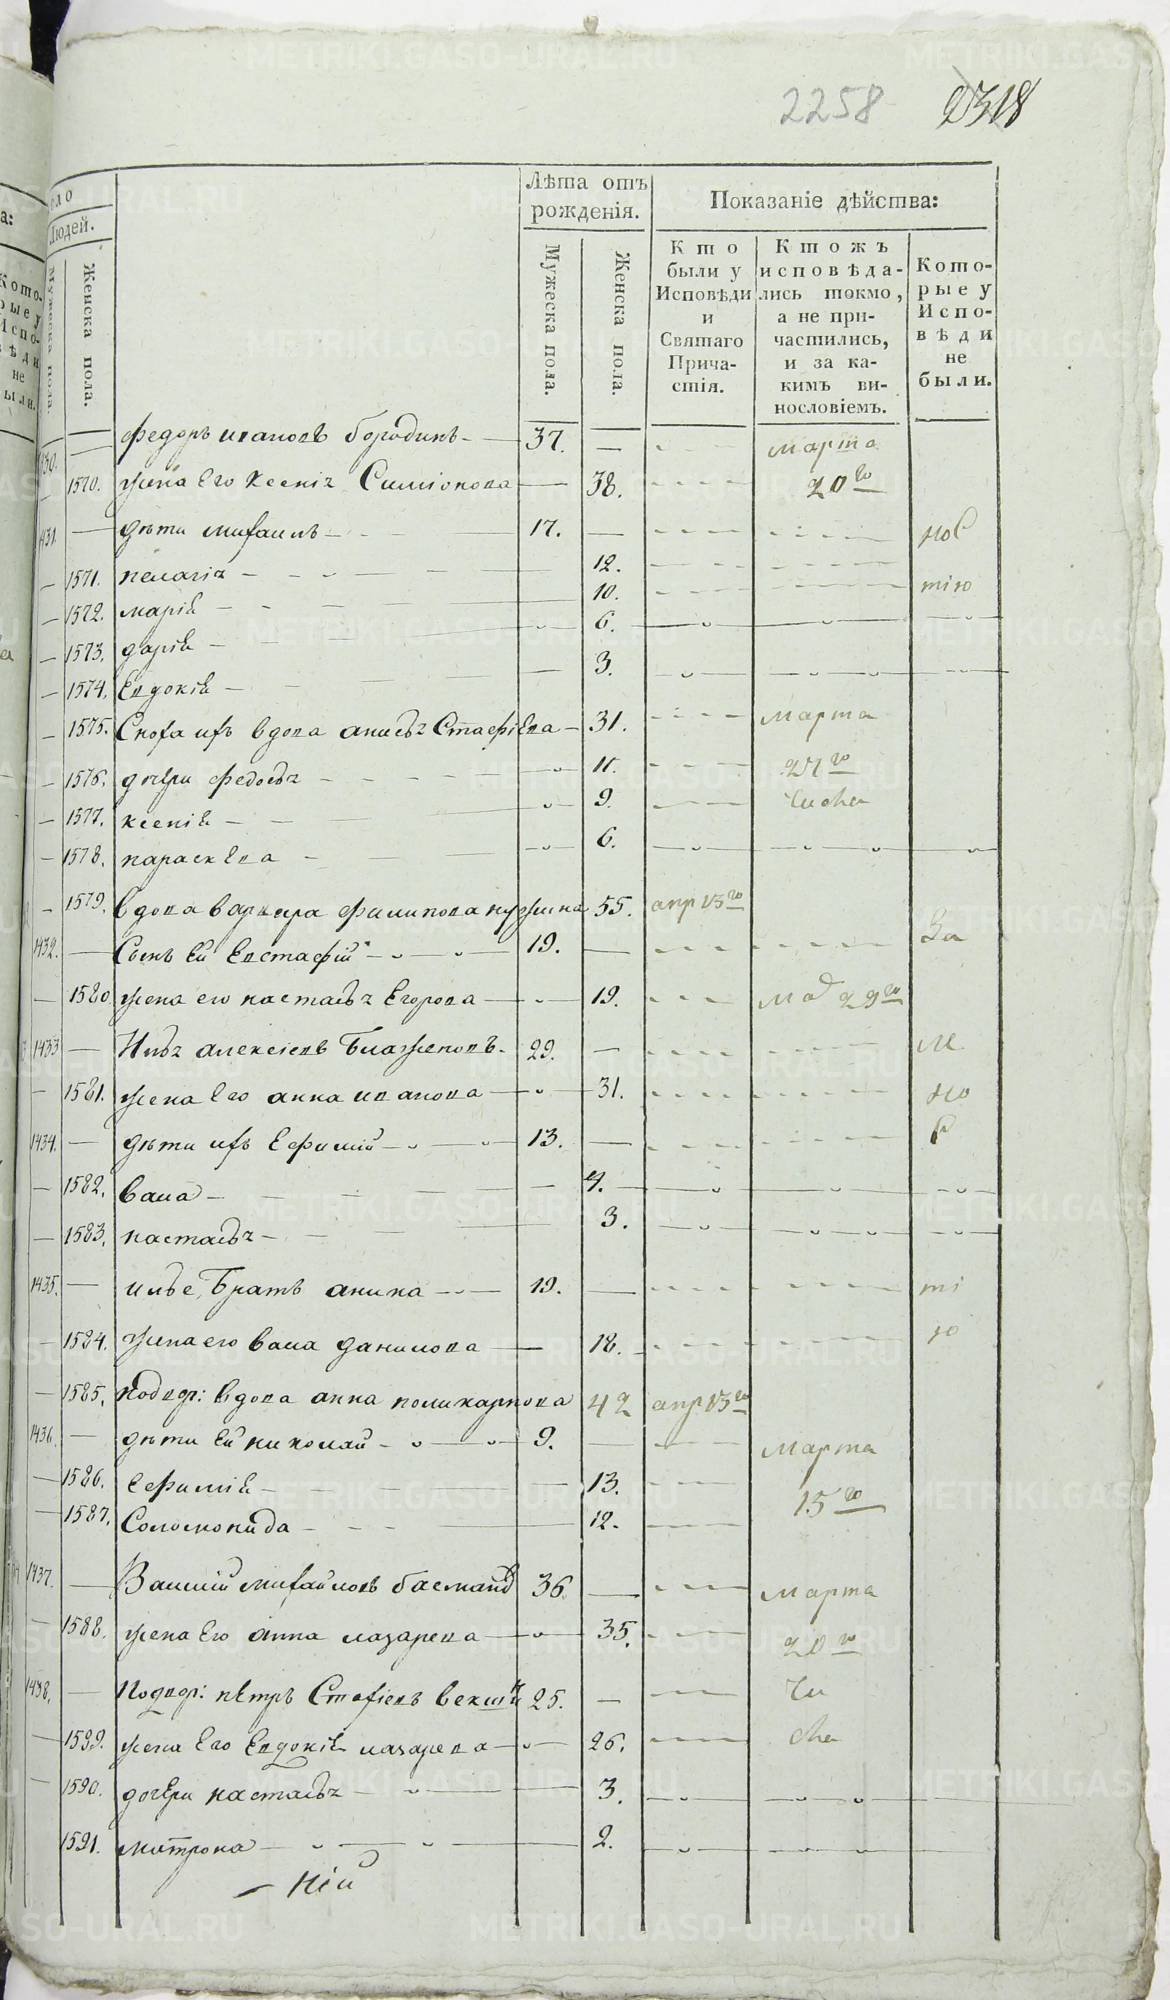 2258 2318
ело
Людей.
Мужеска пола.
Женска пола.
Лѣта отъ рожденія.
Мужеска пола.
Женска пола.
Показаніе дѣйства:
Кто были у Исповѣди и Святаго Причастія.
Ктожъ исповѣдались токмо, а не причастились, и за какимъ винословіемъ.
Которые у Исповѣди не были.
1430. — федоръ ивановъ бородинъ — 37. — марта
— 1570. жена его ксенія Симіонова — 38. 20го
1431. — дѣти михаилъ — 17. — нов
— 1571. пелагія — 12.
— 1572. марія — 10. тію
— 1573. дарія — 6.
— 1574. Евдокія — 3.
— 1575. Сноха ихъ вдова анисья Стафіева — 31. марта
— 1576. дочери федосья — 11. 27го
— 1577. ксенія — 9. числа
— 1578. параскева — 6.
— 1579. вдова варвара филипова 55. апр 13го
1432. — Сынъ Ей Евстафій — 19. — За
— 1580 жена его настасья Егорова — 19. 29го
1433 — Илья алексѣевъ Блаженовъ. 29. — ма
— 1581. жена Его анна иванова — 31. ло
1434. — дѣти ихъ Ефимій — 13. —
— 1582. васа — 4.
— 1583. настасья — 3.
1435. — ильѣ, Братъ аника — 19. — ті
— 1584. жена его васа данилова — 18. ю
— 1585. Подвор: вдова анна поликарпова 42 апр 13го
1436. — дѣти Ей николай — 9. — марта
— 1586. Ефимія — 13. 15го
— 1587. Соломонида — 12.
1437. — Василій михайловъ басмановъ 36. — марта
— 1588. жена Его анна лазарева — 35. 20го
1438. — Подвор: пётръ Стафіевъ 25. — чи
— 1589. жена Его Евдокія лазарева — 26. сла
— 1590. дочери настасья — 3.
— 1591. матрона — 2.